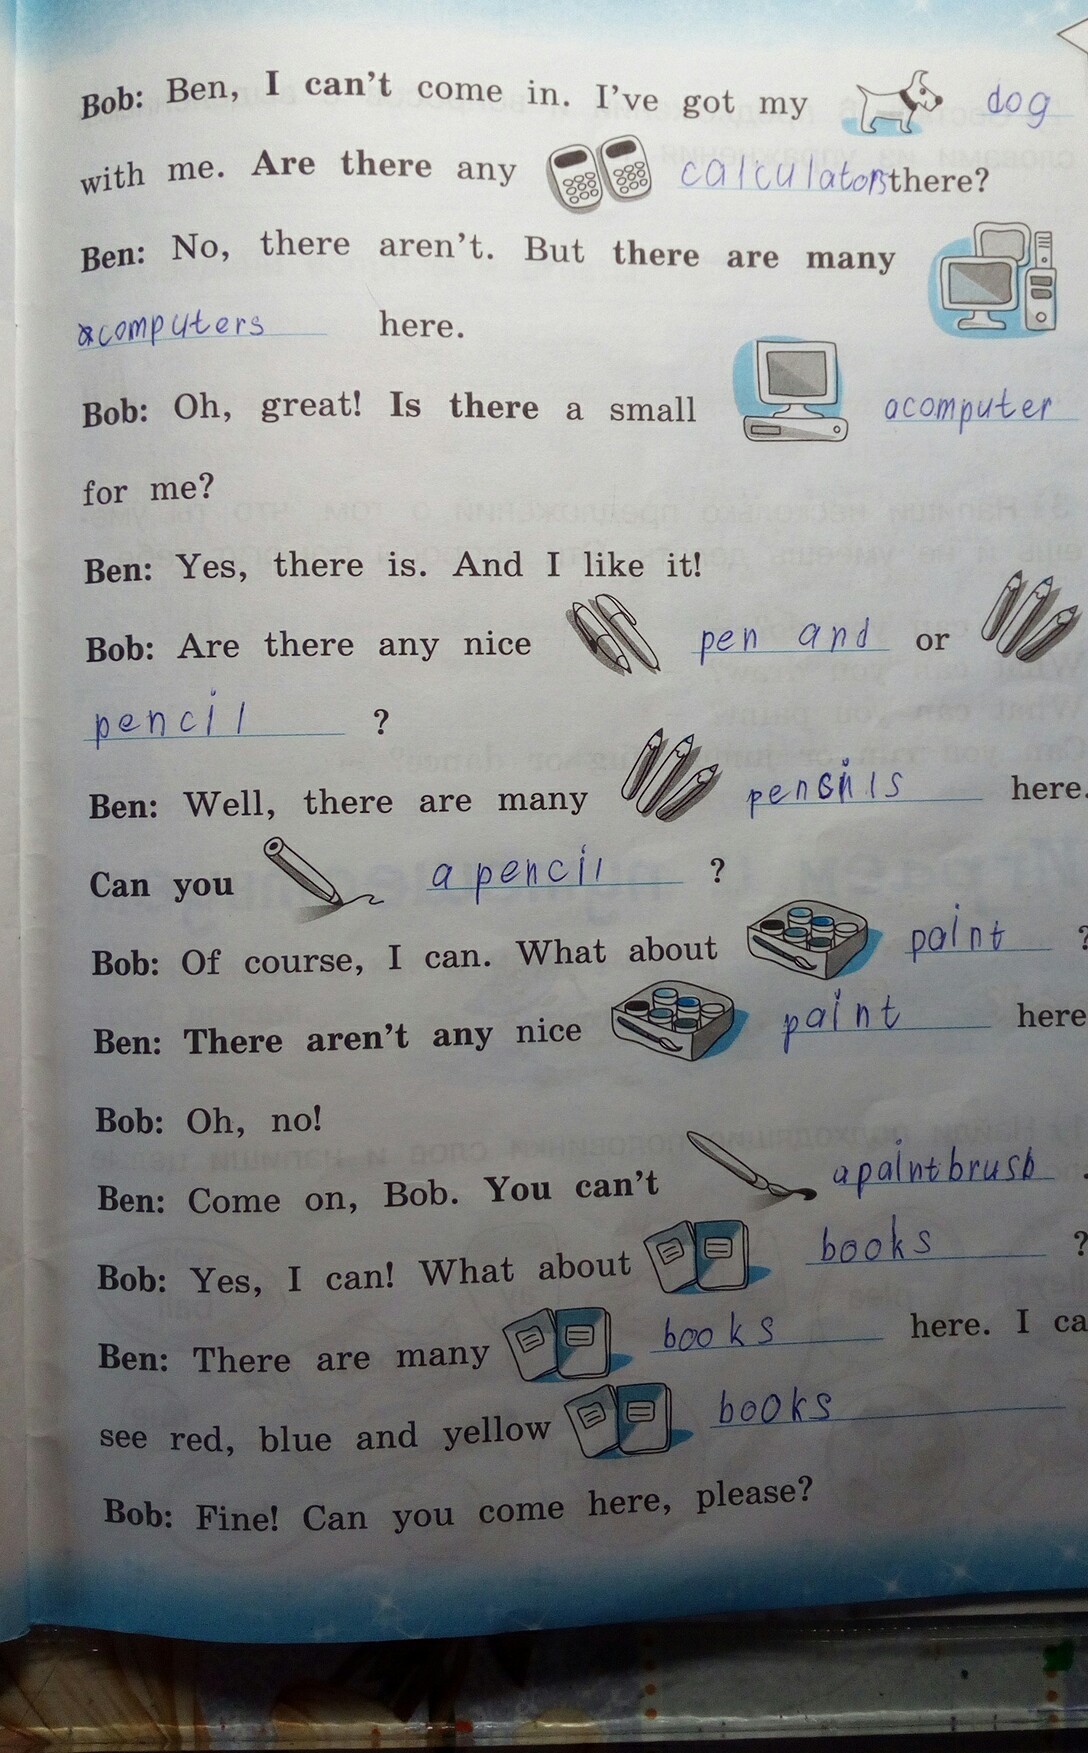 Bob: Ben, I can't come in. I've got my dog
with me. Are there any calculators there?
Ben: No, there aren't. But there are many
computers here.
Bob: Oh, great! Is there a small acomputer
for me?
Ben: Yes, there is. And I like it!
Bob: Are there any nice pen and or
pencil ?
Ben: Well, there are many pencils here.
Can you a pencil ?
Bob: Of course, I can. What about paint ?
Ben: There aren't any nice paint here
Bob: Oh, no!
Ben: Come on, Bob. You can't apaintbrush .
Bob: Yes, I can! What about books ?
Ben: There are many books here. I ca
see red, blue and yellow books
Bob: Fine! Can you come here, please?